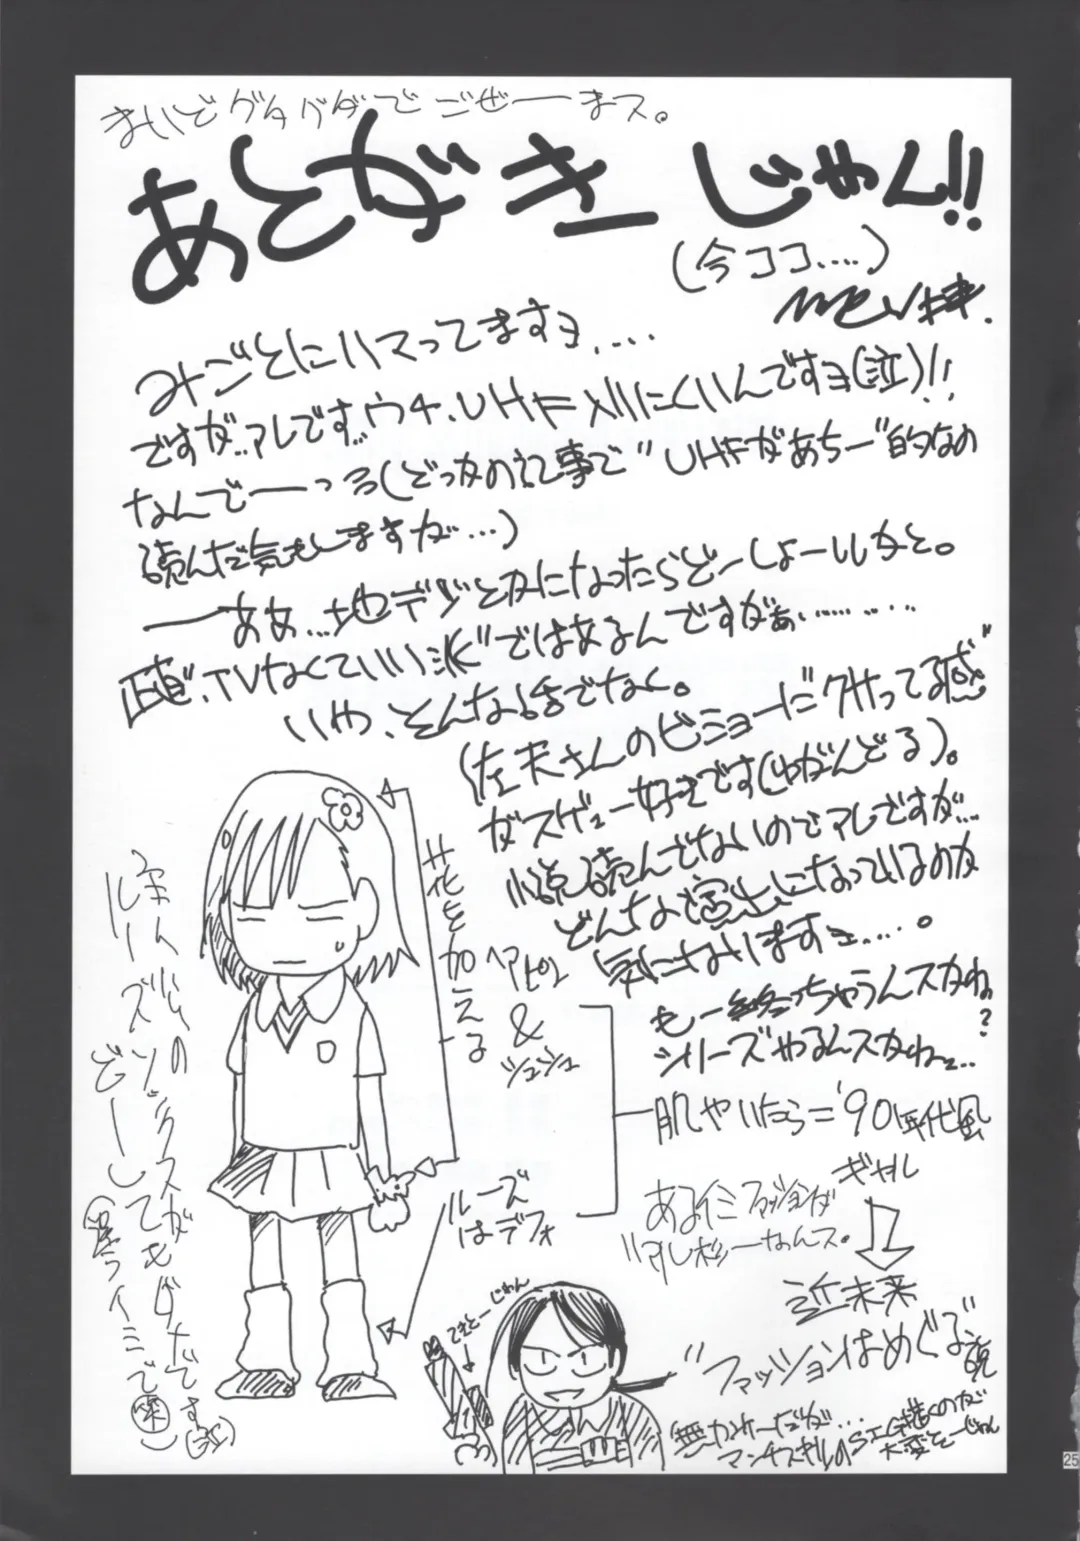 まいどグダグダでござーまス。
あとがきじゃん!!
(今ココ....)
みごとにハマってますョ.....
ですが..アレです..ウチ、UHF入りにくいんですョ(泣)!!
なんでーっろ(どっかの記事で"UHFがあちー"的なの
読んだ気もしますが...)
ーああ...地デジとかになったらどーしょーいいかと。
正直、TVなくていい派"ではあるんですがぁ............
いや、そんな話でなく。
(佐天さんのビミョーに"クサってる感"
がスゲェー好きです(ゆがんどる)。
小説読んでないのでアレですが...
どんな演出になっているのか
気になりますョ.....。
もー終っちゃうんスかね?
シリーズやるんスかねェ..
花を加える
ヘアピン
&
シュシュ
肌やいたら='90年代風
ギャル
ある意ミファッションが
アレなんス。
近未来
"ファッションはめぐる"説
ルーズ
はデフォ
ルーズソックスがどーしてもダメです
(違うイミで(笑))
てきとーじゃん
無かれーだが...
マンナスキルのSIG描くのが
大変そーじゃん
25